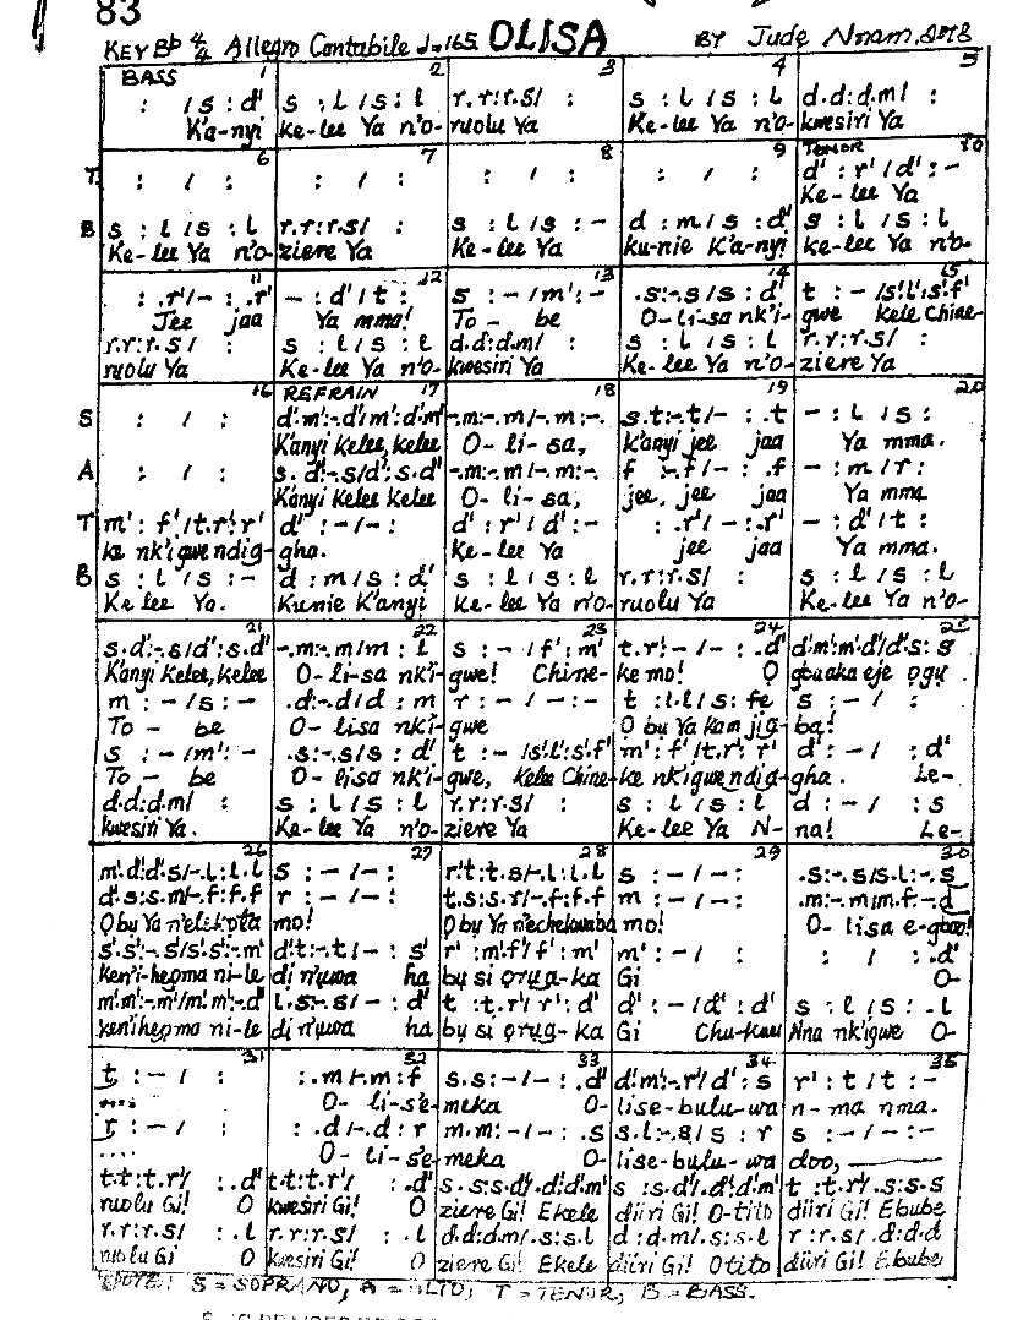 83
KEY Bb 4/4 Allegro Cantabile ♩=165 OLISA BY Jude Nnam.
BASS 1 2 3 4 5
: /s : d' s : l /s : l r.r:r.s/ : s : l /s : l d.d:d.m/ :
K'a-nyi Ke-lee Ya n'o- ruolu Ya Ke-lee Ya n'o- kwesiri Ya
6 7 8 9 TENOR 10
T : / : : / : : / : : / : d' : r' / d' : -
Ke-lee Ya
B s : l /s : l r.r:r.s/ : s : l /s : - d : m / s : d' s : l /s : l
Ke-lee Ya n'o- ziere Ya Ke-lee Ya ku-nie K'a-nyi ke-lee Ya n'o-
11 12 13 14 15
: .r'/- : .r' - : d' / t : s : - /m' : - .s:-.s/s : d' t : - /s'.l':s'.f'
Jee jaa Ya mma! To - be O-li-sa nk'i- gwe kele Chine-
r.r:r.s/ : s : l /s : l d.d:d.m/ : s : l /s : l r.r:r.s/ :
ruolu Ya Ke-lee Ya n'o- kwesiri Ya Ke-lee Ya n'o- ziere Ya
16 REFRAIN 17 18 19 20
S : / : d'.m':-.d'/m':d'.m' -.m:-.m/-.m:-. s.t:-.t/- : .t - : l /s :
K'anyi Kelee, kelee O-li-sa, K'anyi jee jaa Ya mma.
A : / : s.d':-.s/d':s.d' -.m:-.m/-.m:-. f :-.f/- : .f - : m / r :
K'anyi Kelee Kelee O-li-sa, jee, jee jaa Ya mma
T m' : f' /t.r':r' d' : - / - : d' : r' / d' : - : .r'/ - : .r' - : d' / t :
ke nk'igwe ndig- gha. Ke-lee Ya jee jaa Ya mma.
B s : l /s : - d : m / s : d' s : l /s : l r.r:r.s/ : s : l /s : l
Ke lee Ya. Kunie K'anyi Ke-lee Ya n'o- ruolu Ya Ke-lee Ya n'o-
21 22 23 24 25
s.d':-.s/d':s.d' -.m:-.m/m : l s : - / f' : m' t.r':-/- : .d' d'.m':m'.d'/d'.s:s
K'anyi Kelee, kelee O-li-sa nk'i- gwe! Chine- ke mo! Ọ gbaaka eje ọgụ
m : - /s : - .d:-.d/d : m r : - / - : - t : l.l/s : fe s : - / :
To - be O-lisa nk'i- gwe O bu Ya kam jig- ba!
s : - /m' : - .s:-.s/s : d' t : - /s'.l':s'.f' m' : f' /t.r':r' d' : - / : d'
To - be O-lisa nk'i- gwe, Kelee Chine- ke nk'igwe ndig- gha. Le-
d.d:d.m/ : s : l /s : l r.r:r.s/ : s : l /s : l d : - / : s
kwesiri Ya. Ke-lee Ya n'o- ziere Ya Ke-lee Ya N- na! Le-
26 27 28 29 30
m'.d':d'.s/-.l:l.l s : - / - : r'.t:t.s/-.l:l.l s : - / - : .s:-.s/s.l:-.s
d'.s:s.m/-.f:f.f r : - / - : t.s:s.r/-.f:f.f m : - / - : .m:-.m/m.f:-.d
Obu Ya n'elekọta mo! Obu Ya n'echekwaba mo! O-lisa e-gboo!
s'.s':-.s'/s'.s':-.m' d'.t:-.t/- : s' r' :m'.f'/f' : m' m' : - / : : / : .d'
Ken'i-hegma ni-le di n'ụwa ha bu si ọrụa-ka Gi O-
m'.m':-.m'/m'.m':-.d' l.s:-.s/- : d' t :t.r'/r' : d' d' : - /d' : d' s : l /s : .l
Ken'ihegma ni-le di n'ụwa ha bu si ọrụa-ka Gi Chu-kwu Nna nk'igwe O-
31 32 33 34 35
t : - / : : .m/-.m:f s.s:-/- : .d' d'.m':-.r'/d' : s r' : t / t : -
.... O-li-s'e- meka O- lise-bulu-wa n-ma nma.
r : - / : : .d/-.d:r m.m:-/- : .s s.l:-.s/s : r s : - / - : -
.... O-li-s'e- meka O- lise-bulu-wa doo,
t.t:t.r'/ : .d' t.t:t.r'/ : .d' s.s:s.d'/.d':d'.m' s :s.d'/.d':d'.m' t :t.r'/.s:s.s
ruolu Gi! O kwesiri Gi! O ziere Gi! Ekele diiri Gi! O-tito diiri Gi! Ebube
r.r:r.s/ : .l r.r:r.s/ : .l d.d:d.m/.s:s.l d :d.m/.s:s.l r :r.s/.d:d.d
ruolu Gi O kwesiri Gi! O ziere Gi! Ekele diiri Gi! Otito diiri Gi! Ebube
NOTE: S = SOPRANO, A = ALTO, T = TENOR, B = BASS.